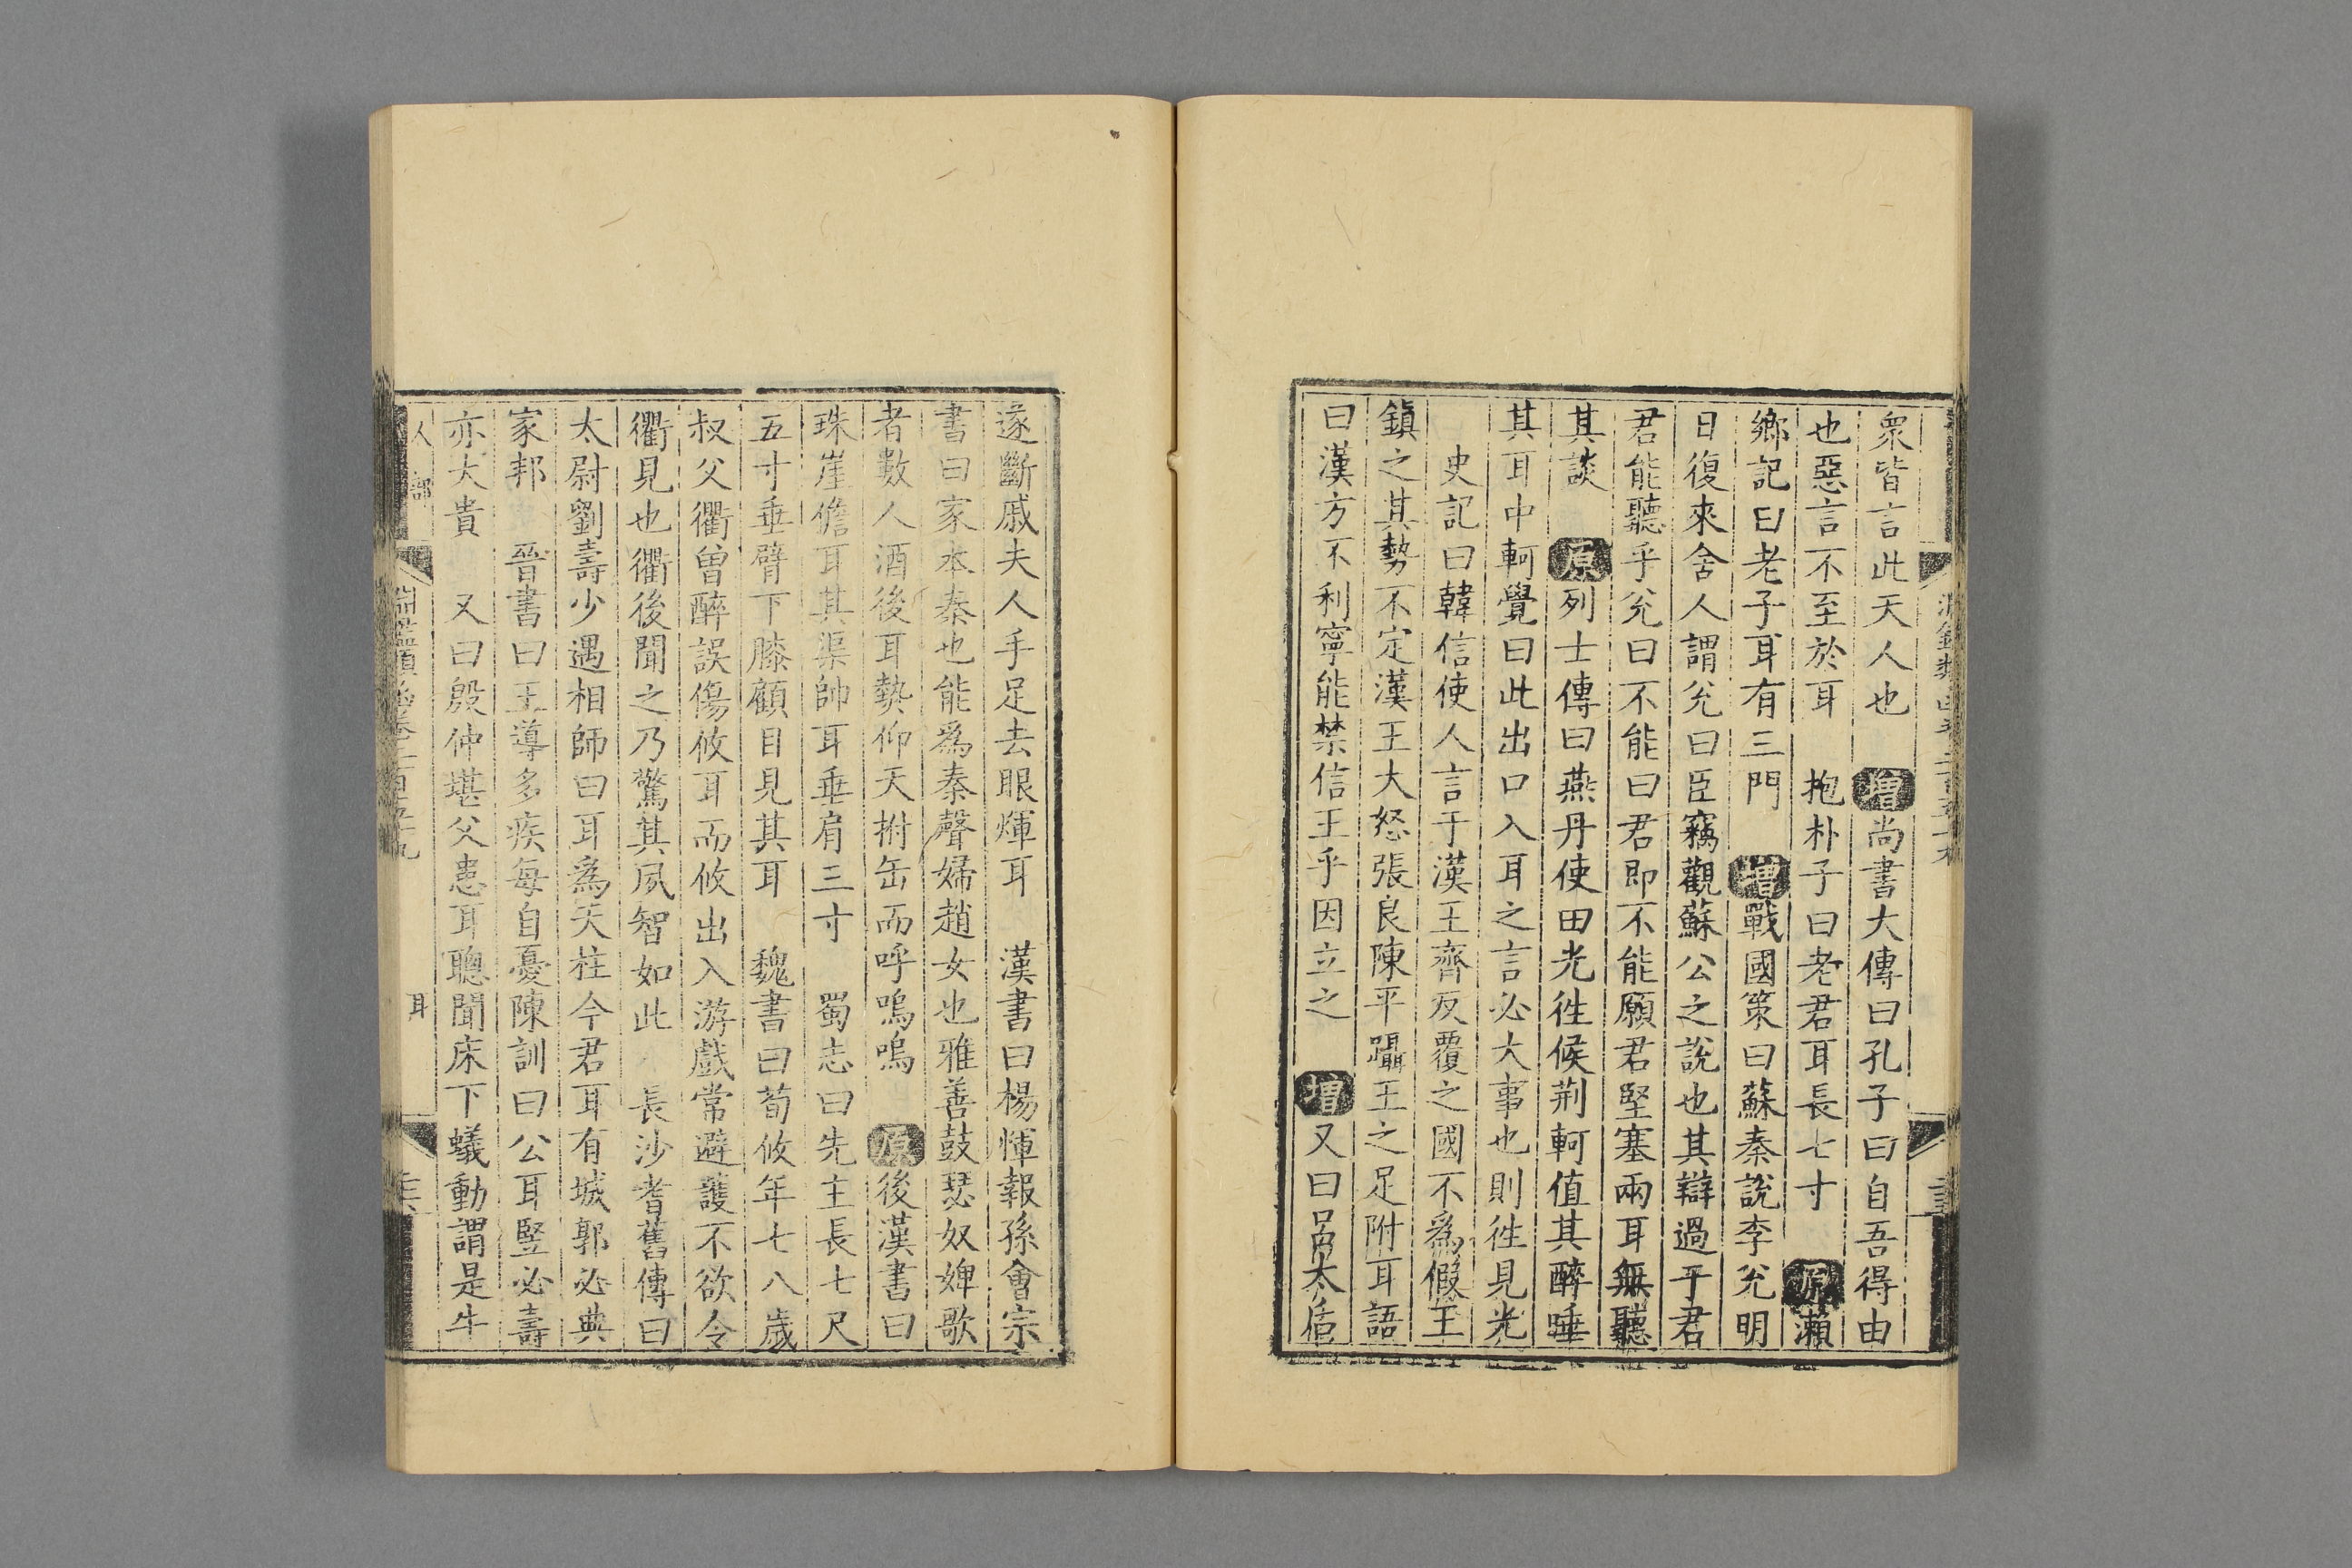 衆皆言此天人也 增尚書大傳曰孔子曰自吾得由
也惡言不至於耳 抱朴子曰老君耳長七寸 原瀨
鄉記曰老子耳有三門 增戰國策曰蘇秦說李兊明
日復來舍人謂兊曰臣竊觀蘇公之說也其辯過于君
君能聽乎兊曰不能曰君即不能願君堅塞兩耳無聽
其談 原列士傳曰燕丹使田光徃候荆軻值其醉唾
其耳中軻覺曰此出口入耳之言必大事也則徃見光
史記曰韓信使人言于漢王齊反覆之國不爲假王
鎭之其勢不定漢王大怒張良陳平躡王之足附耳語
曰漢方不利寧能禁信王乎因立之 增又曰呂太后
遂斷戚夫人手足去眼煇耳 漢書曰楊惲報孫會宗
書曰家本秦也能爲秦聲婦趙女也雅善鼓瑟奴婢歌
者數人酒後耳熱仰天拊缶而呼嗚嗚 原後漢書曰
珠崖儋耳其渠帥耳垂肩三寸 蜀志曰先主長七尺
五寸垂臂下膝顧目見其耳 魏書曰荀攸年七八歲
叔父衢曽醉誤傷攸耳而攸出入游戲常避護不欲令
衢見也衢後聞之乃驚其夙智如此 長沙耆舊傳曰
太尉劉壽少遇相師曰耳爲天柱今君耳有城郭必典
家邦 晉書曰王導多疾每自憂陳訓曰公耳竪必壽
亦大貴 又曰殷仲堪父患耳聰聞床下蟻動謂是牛
人部 淵鑑類函卷二百五十九 耳